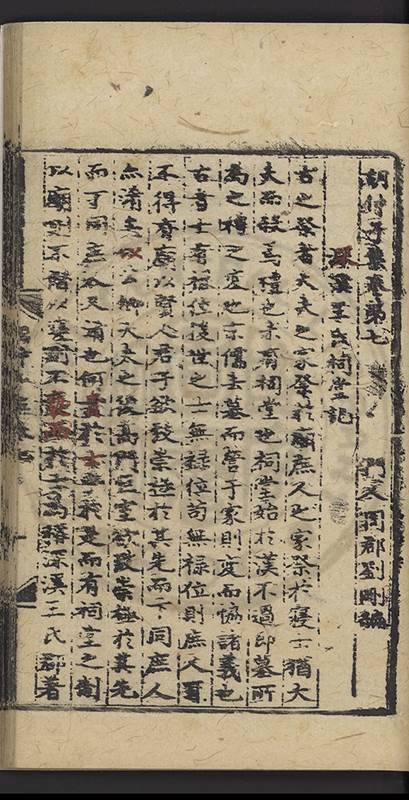 胡仲子集卷第七
門人同郡劉剛編
深溪王氏祠堂記
古之祭者大夫之家祭於廟庶人之家祭於寢士猶大
夫而殺焉禮也未有祠堂也祠堂始於漢不過即墓所
為之禮之變也宋儒去墓而營于家則變而協諸義也
古者士有祿位後世之士無祿位苟無祿位則庶人耳
不得有廟以賢人君子欲致崇極於其先而下同庶人
亦淆矣以公卿大夫之後高門巨室欲致崇極於其先
而下同庶人又淆也何者於士於是而有祠堂之制
以廟則不僭以寢則不於士為稱深溪王氏郡著